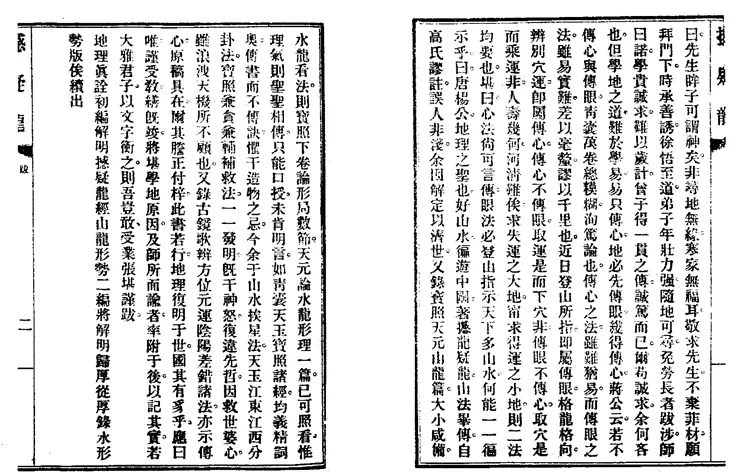 撼疑龍
曰先生眸子可謂神矣非尋地無緣寒家無福耳敬求先生不棄菲材願
拜門下時承善誘徐悟至道弟子年壯力強隨地可尋免勞長者跋涉師
曰諾學貴誠求難以歲計曾子得一貫之傳誠篤而已爾苟誠求余何吝
也但學地之道難於學易易只傳心地必先傳眼纔得傳心蔣公云若不
傳心與傳眼靑囊萬卷總糢糊洵篤論也傳心之法雖難猶易而傳眼之
法雖易實難差以毫釐謬以千里也近日登山所指即屬傳眼格龍格向
辨別穴運即屬傳心傳心不傳眼取運是而下穴非傳眼不傳心取穴是
而乘運非人壽幾何河清難俟求失運之大地甯求得運之小地則二法
均要也堪曰心法尙可言傳眼法必登山指示天下多山水何能一一徧
示乎曰唐楊公地理之聖也好山水徧遊中國著撼龍疑龍山法畢傳自
高氏謬註誤人非淺余因解定以濟世又錄寶照天元山龍篇大小咸備
水龍看法則寶照下卷論形局數節天元論水龍形理一篇已可照看惟
理氣則聖聖相傳只能口授未肯明言如靑囊天玉寶照諸經均義精詞
奧傳書而不傳訣懼干造物之忌今余于山水挨星法天玉江東江西分
卦法寶照兼貪兼輔補救法一一發明旣干神怒復違先哲因救世婆心
雖浪洩天機所不顧也又錄古鏡歌辨方位元運陰陽差錯諸法亦示傳
心原稿具在爾其謄正付梓此書若行地理復明于世國其有豸乎應曰
唯謹受敎繕旣竣將堪學地原因及師所面論者率附于後以記其實若
大雅君子以文字衡之則吾豈敢受業張堪謹跋
地理眞詮初編解明撼疑龍經山龍形勢二編將解明歸厚從厚錄水形
勢版俟續出
撼疑龍
跋
二